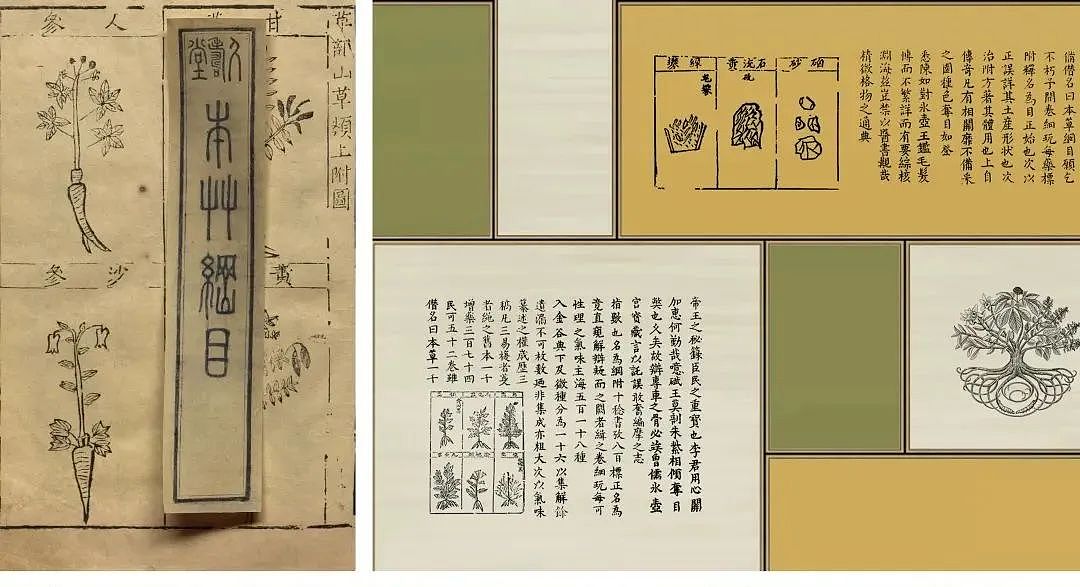 草部山草類上附圖
甘
人參
本艸綱目
黃
沙參
僭名曰本草綱目願乞
不朽予開卷細玩每藥標
附釋名為目正始也次以
正誤詳其土產形狀也次
治附方著其體用也上自
傳奇凡有相關靡不備采
之園種色奪目如登
悉陳如對氷壺玉鑑毛髮
博而不繁詳而有要綜核
淵海茲豈禁以醫書觀哉
精微格物之通典
石流黃
帝王之秘籙臣民之重寶也李君用心
加惠何勤哉噫碔玉莫剖朱紫相傾奪目
弊也久矣故辯專車之骨必竢魯儒氷壺
言以託誤敢奢編摩之志
指數也名為綱附十稔書攷八百標正名為
竟直窺解辯疑而之闕者緝之卷細玩每可
性理之氣味主海五百一十八種
入金谷典下及微種分為一十六以集解
遺滿不可枚數廼非集成亦粗大次以氣味
纂述之權歲歷三
稿凡三易複者芟
者繩之舊本一十
增藥三百七十四
民可五十二卷雖
僭名曰本草一十